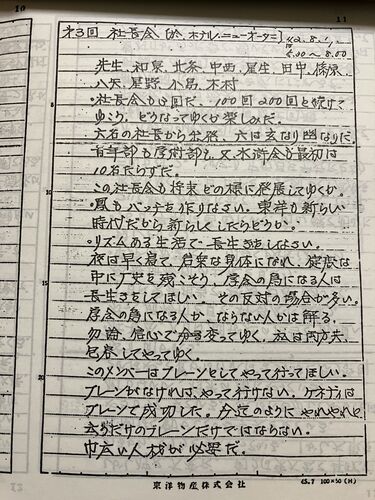 10
11
第3回 社長会 [於、ホテル・ニューオータニ] 42.8.1,
6.00〜8.00
先生、和泉、北条、中西、星生、田中、篠原、
八矢、星野、小島、木村
・社長会も3回だ、100回200回と続けて
ゆこう、どうなってゆくか楽しみだ。
六名の社長から出発、六は玄なり幽なりだ。
首年部も学術部も、又、水滸会も最初は
10名たらずだ。
この社長会も将来どの様に発展してゆくか。
・鳳もバッヂを作りなさい。東洋も新らしい
時代だから新らしくしたらどうか。
・リズムある生活で長生きをしなさい。
夜は早く寝て、君楽な身体になれ、
中に广史を残そう、学会の為になる人は
長生きをしてほしい。その反対の場合が多い。
学会の為になる人か、ならない人かは解る。
勿論、信心で変ってゆく、私は両方共、
包容してやってゆく。
このメンバーはブレーンとしてやって行ってほしい。
ブレーンがなければ、やって行けない。ケネディは
ブレーンで成功した。のようにやれやれと
云うだけのブレーンだけではならない。
巾広い人材が必要だ。
東洋物産株式会社
45.7 100×50 (H)